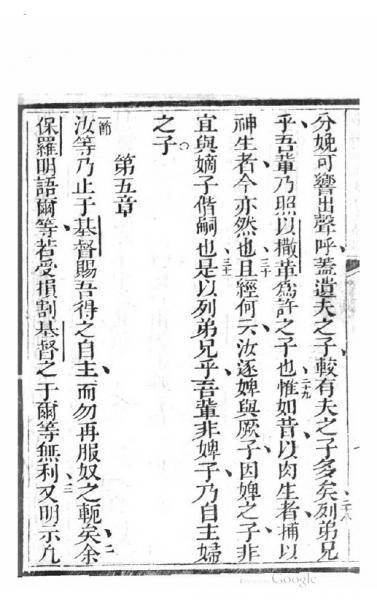 分娩可響出聲呼蓋遺夫之子較有夫之子多矣二十八列弟兄
乎吾輩乃照以撒革為許之子也二十九惟如昔以肉生者捕以
神生者今亦然也三十且經何云汝逐婢與厥子因婢之子非
宜與嫡子偕嗣也三十一是以列弟兄乎吾輩非婢子乃自主婦
之子
第五章
一節汝等乃止于基督賜吾得之自主而勿再服奴之軛矣二余
保羅明語爾等若受損割基督之于爾等無利三又明示凡
Google